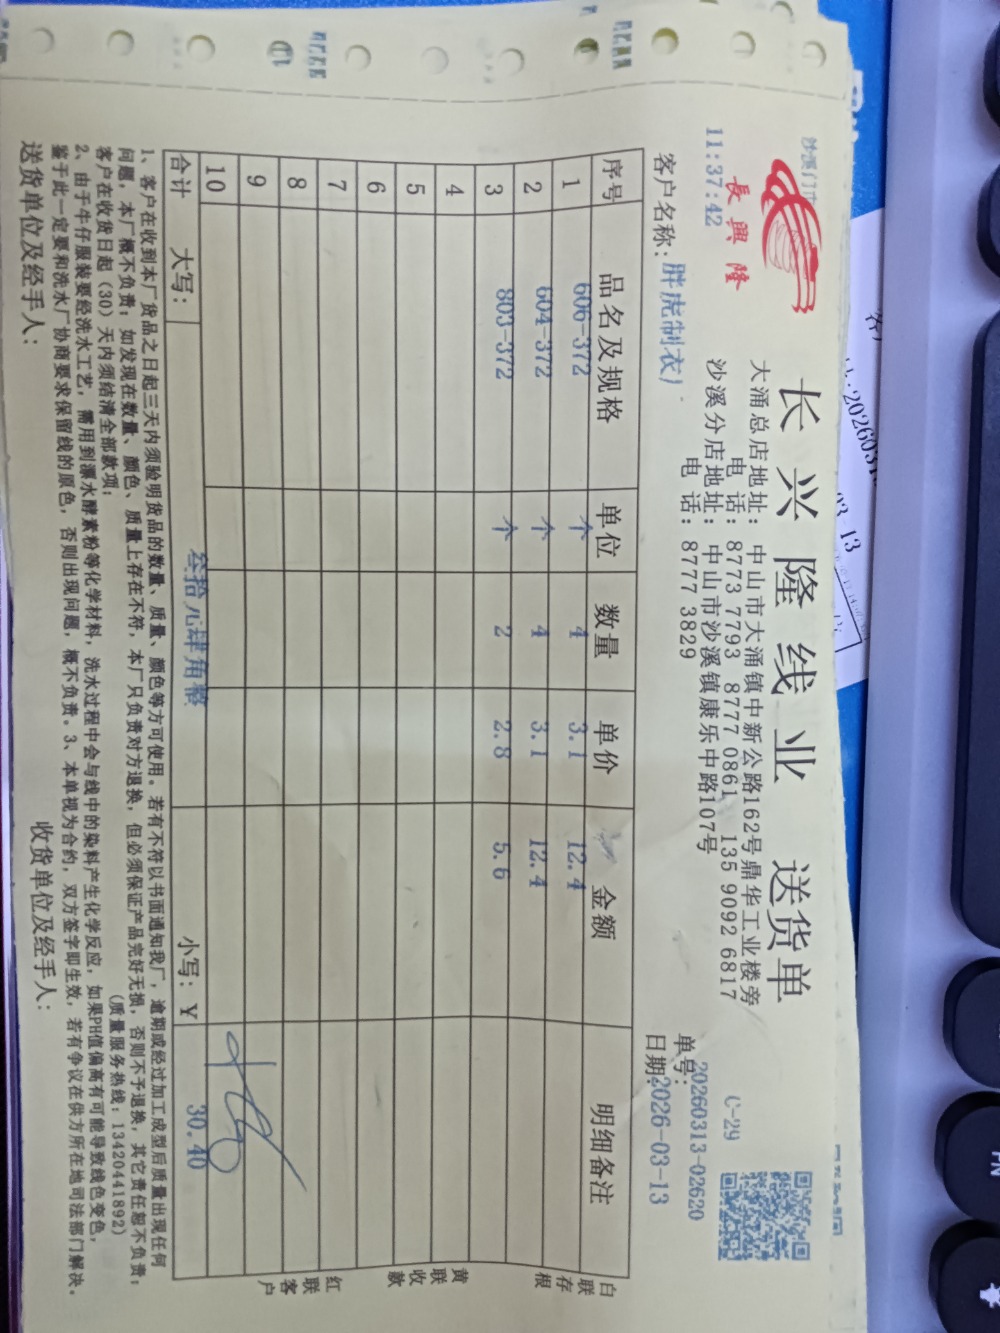 沙溪门市
長興隆
11:37:42
长兴隆线业 送货单
大涌总店地址: 中山市大涌镇中新公路162号鼎华工业楼旁
电 话: 8773 7793 8777 0861 135 9092 6817
沙溪分店地址: 中山市沙溪镇康乐中路107号
电 话: 8777 3829
C-29
单号: 20260313-02620
客户名称: 胖虎制衣厂
日期: 2026-03-13
序号 品名及规格 单位 数量 单价 金额 明细备注
1 606-372 个 4 3.1 12.4
2 604-372 个 4 3.1 12.4
3 803-372 个 2 2.8 5.6
4
5
6
7
8
9
10
合计 大写: 叁拾元肆角整 小写: ¥ 30.40
白联存根
黄联收款
红联客户
1、客户在收到本厂货品之日起三天内须验明货品的数量、质量、颜色等方可使用。若有不符以书面通知我厂,逾期或经过加工成型后质量出现任何
问题,本厂概不负责;如发现在数量、颜色、质量上存在不符,本厂只负责对方退换,但必须保证产品完好无损,否则不予退换,其它责任恕不负责;
客户在收货日起(30)天内须结清全部款项; (质量服务热线:13420441892)
2、由于牛仔服装要经洗水工艺,需用到漂水酵素粉等化学材料,洗水过程中会与线中的染料产生化学反应,如果PH值偏高有可能导致线色变色,
鉴于此一定要和洗水厂协商要求保留线的原色,否则出现问题,概不负责。3、本单视为合约,双方签字即生效,若有争议在供方所在地司法部门解决。
送货单位及经手人: 收货单位及经手人: